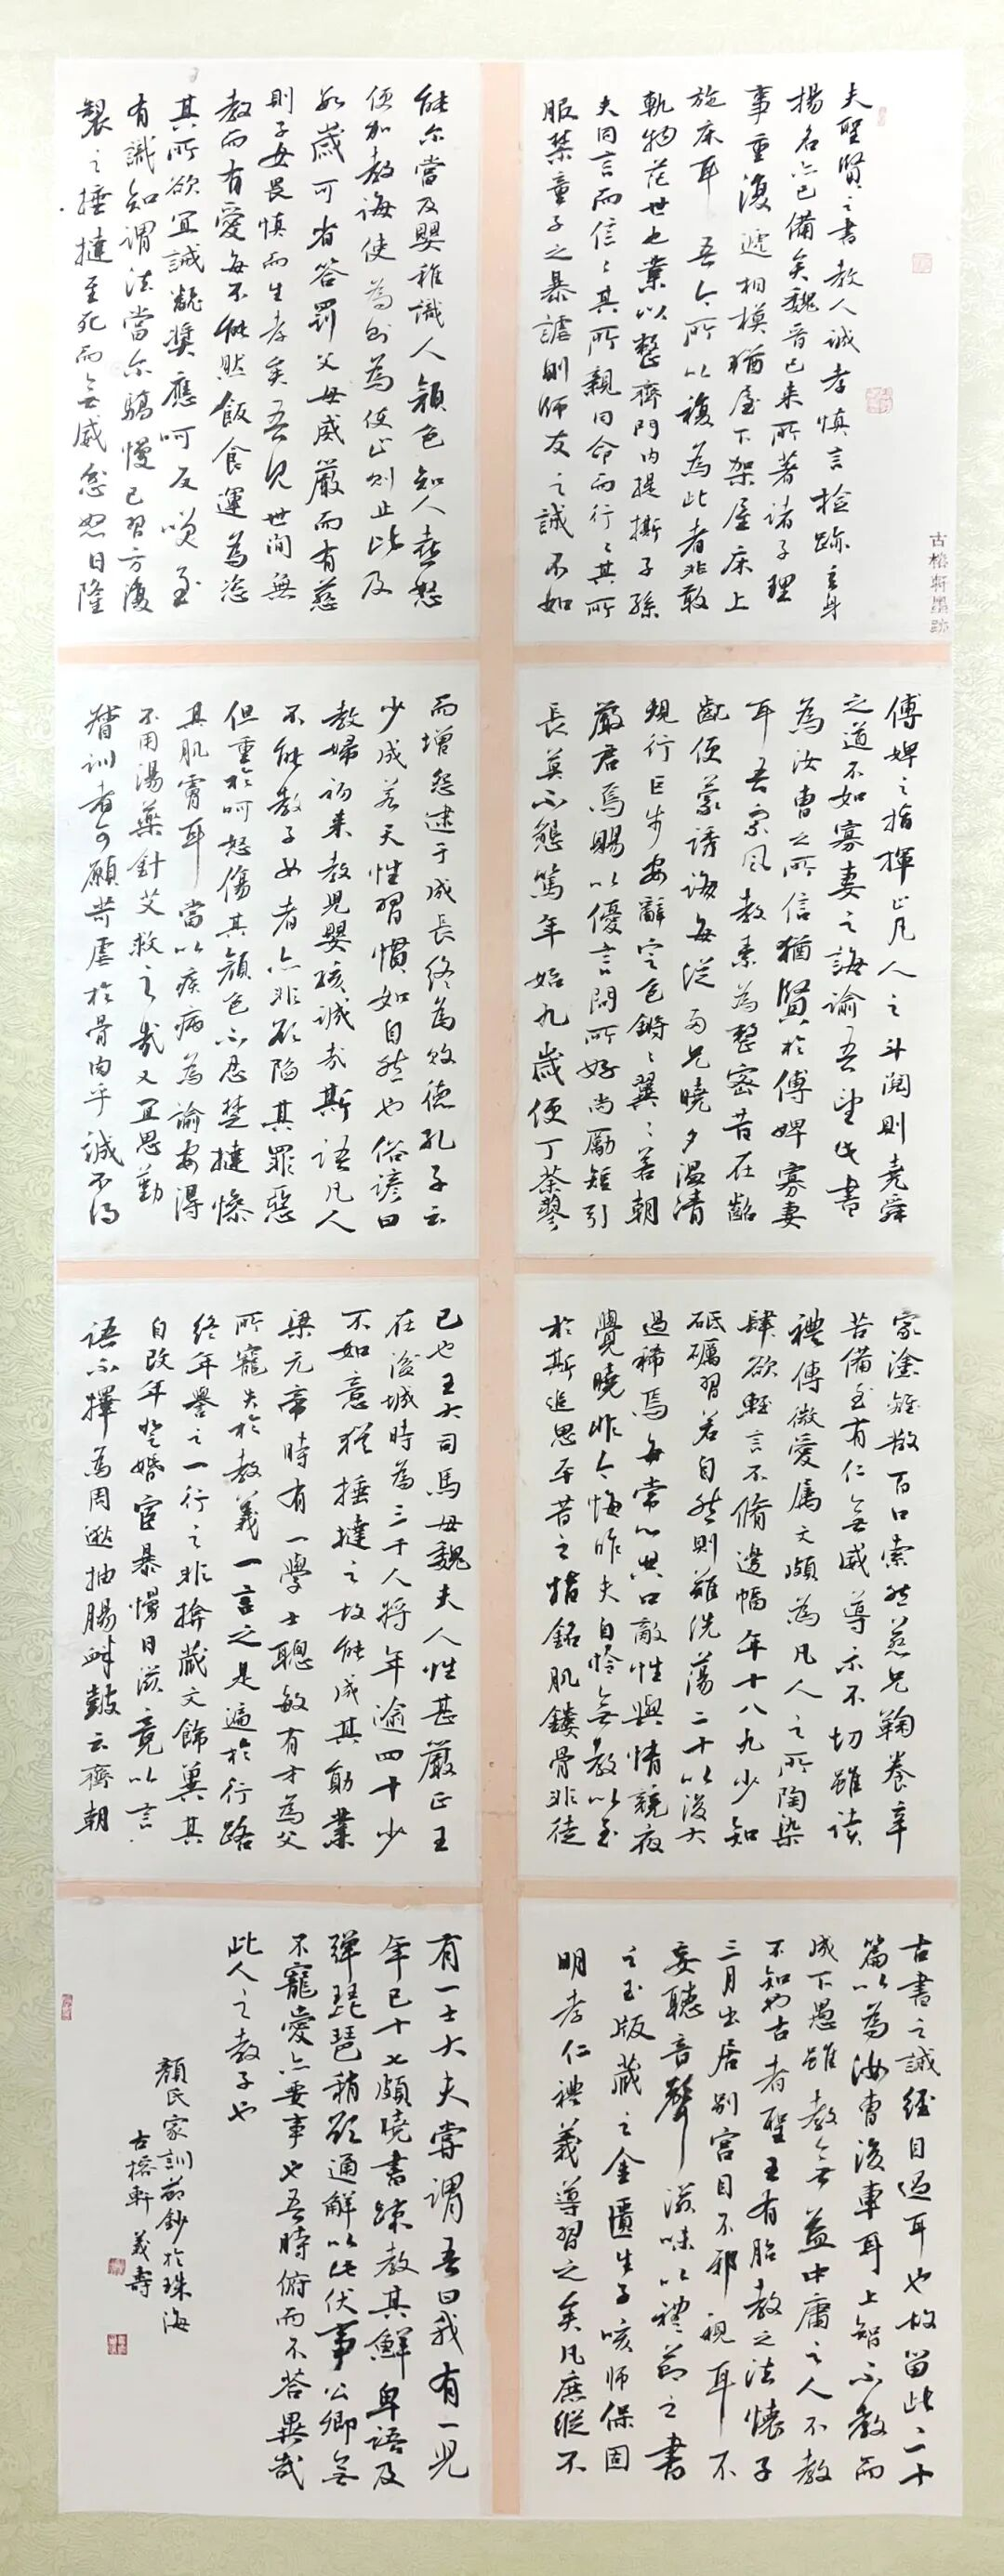 夫聖賢之書教人誠孝慎言檢跡立身
揚名亦已備矣魏晉已來所著諸子理
事重復遞相模猶屋下架屋床上
施床耳 吾今所以複為此者非敢
軌物范世也業以整齊門內提撕子孫
夫同言而信信其所親同命而行行其所
服禁童子之暴謔則師友之誡不如
傅婢之指揮止凡人之斗鬩則堯舜
之道不如寡妻之誨諭吾望此書
為汝曹之所信猶賢於傅婢寡妻
耳 吾家風教素為整密昔在齠
齔便蒙誘誨每從兩兄曉夕溫凊
規行矩步安辭定色鏘鏘翼翼若朝
嚴君焉賜以優言問所好尚勵短引
長莫不懇篤年始九歲便丁荼蓼
家塗離散百口索然慈兄鞠養辛
苦備至有仁無威導示不切雖讀
禮傳微愛屬文頗為凡人之所陶染
肆欲輕言不脩邊幅年十八九少知
砥礪習若自然則難洗蕩二十以後大
過稀焉每常心與口敵性與情競夜
覺曉非今悔昨失自憐無教以至
於斯追思平昔之指銘肌鏤骨非徒
古書之誡經目過耳也故留此二十
篇以為汝曹後車耳上智不教而
成下愚雖教無益中庸之人不教
不知也古者聖王有胎教之法懷子
三月出居別宮目不邪視耳不
妄聽音聲滋味以禮節之書
之玉版藏之金匱生子咳師保固
明孝仁禮義導習之矣凡庶縱不
能尔當及嬰稚識人顏色知人喜怒
便加教誨使為則為使止則止比及
數歲可省笞罰父母威嚴而有慈
則子女畏慎而生孝矣吾見世間無
教而有愛每不能然飯食運為恣
其所欲宜誡翻獎應呵反笑至
有識知謂法當尔驕慢已習方復
製之捶撻至死而無威忿怒日隆
而增怨逮于成長終為敗德孔子云
少成若天性習慣如自然也俗諺曰
教婦初來教兒嬰孩誠哉斯語凡人
不能教子女者亦非欲陷其罪惡
但重於呵怒傷其顏色不忍楚撻慘
其肌膚耳 當以疾病為諭安得
不用湯藥針艾救之哉又宜思勤
督訓者可願苛虐於骨肉乎誠不得
已也王大司馬母魏夫人性甚嚴正王
在湓城時為三千人將年逾四十少
不如意猶捶撻之故能成其勛業
梁元帝時有一學士聰敏有才為父
所寵失於教義一言之是遍於行路
終年譽之一行之非揜藏文飾冀其
自改年登婚宦暴慢日滋竟以言
語不擇為周逖抽腸釁鼓云齊朝
有一士大夫嘗謂吾曰我有一兒
年已十七頗曉書疏教其鮮卑語及
彈琵琶稍欲通解以此伏事公卿無
不寵愛亦要事也吾時俯而不答異哉
此人之教子也
顏氏家訓節鈔於珠海
古榕軒 義壽
古榕軒墨跡